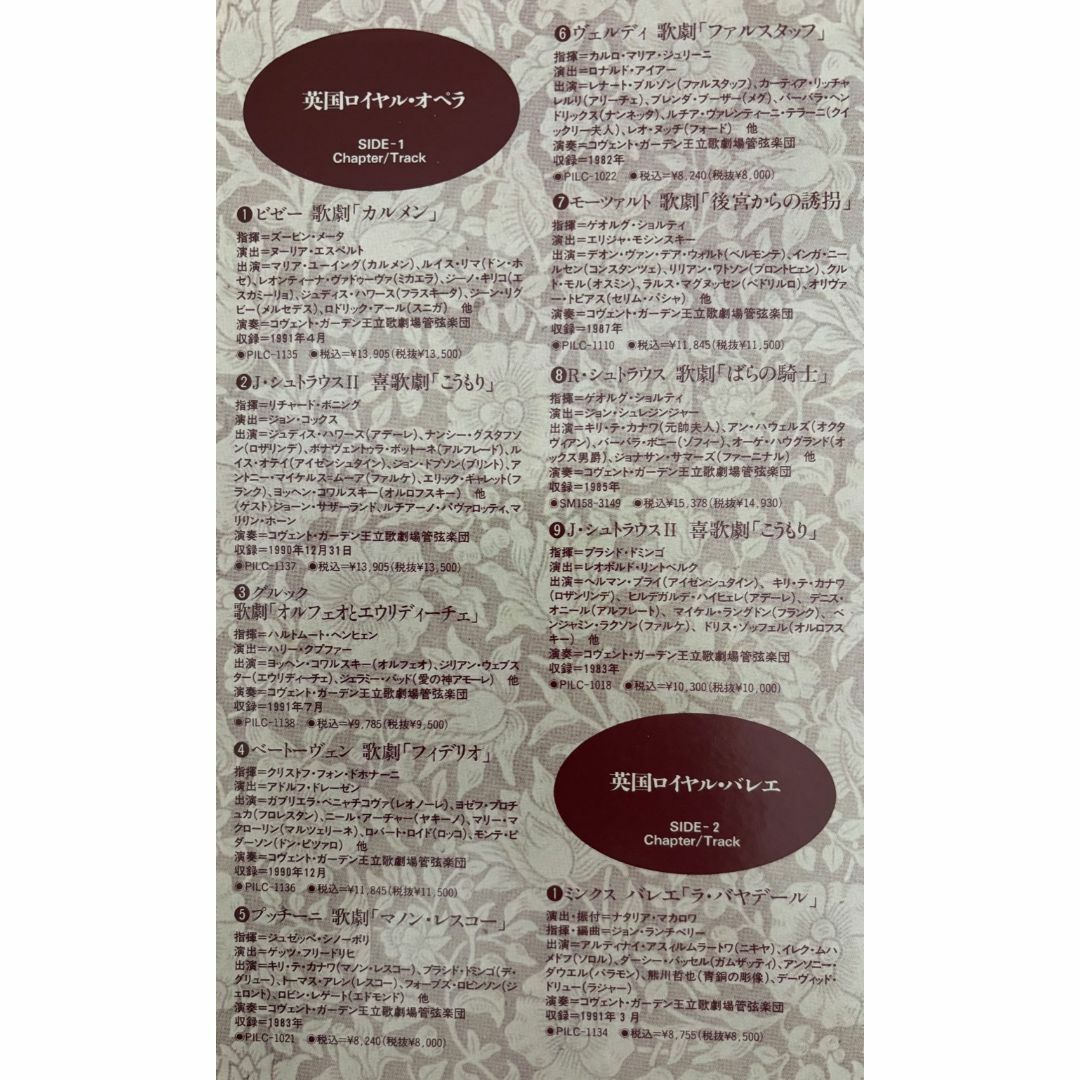 英国ロイヤル・オペラ
SIDE-1
Chapter/Track
❶ビゼー 歌劇「カルメン」
指揮=ズービン・メータ
演出=ヌーリア・エスペルト
出演=マリア・ユーイング(カルメン)、ルイス・リマ(ドン・ホ
セ)、レオンティーナ・ヴァドゥーヴァ(ミカエラ)、ジーノ・キリコ(エ
スカミーリョ)、ジュディス・ハワース(フラスキータ)、ジーン・リグ
ビー(メルセデス)、ロドリック・アール(スニガ) 他
演奏=コヴェント・ガーデン王立歌劇場管弦楽団
収録=1991年4月
◉PILC-1135 ◉税込=¥13,905(税抜¥13,500)
❷J・シュトラウスII 喜歌劇「こうもり」
指揮=リチャード・ボニング
演出=ジョン・コックス
出演=ジュディス・ハワース(アデーレ)、ナンシー・グスタフソ
ン(ロザリンデ)、ボナヴェントゥラ・ボットーネ(アルフレード)、ル
イス・オテイ(アイゼンシュタイン)、ジョン・ドブソン(ブリント)、ア
ントニー・マイケルス=ムーア(ファルケ)、エリック・ギャレット(フ
ランク)、ヨッヘン・コワルスキー(オルロフスキー) 他
〈ゲスト〉ジョーン・サザーランド、ルチアーノ・パヴァロッティ、マ
リリン・ホーン
演奏=コヴェント・ガーデン王立歌劇場管弦楽団
収録=1990年12月31日
◉PILC-1137 ◉税込=¥13,905(税抜¥13,500)
❸グルック
歌劇「オルフェオとエウリディーチェ」
指揮=ハルトムート・ヘンヒェン
演出=ハリー・クプファー
出演=ヨッヘン・コワルスキー(オルフェオ)、ジリアン・ウェブス
ター(エウリディーチェ)、ジェラミー・バッド(愛の神アモーレ) 他
演奏=コヴェント・ガーデン王立歌劇場管弦楽団
収録=1991年7月
◉PILC-1138 ◉税込=¥9,785(税抜¥9,500)
❹ベートーヴェン 歌劇「フィデリオ」
指揮=クリストフ・フォン・ドホナーニ
演出=アドルフ・ドレーゼン
出演=ガブリエラ・ベニャチコヴァ(レオノーレ)、ヨゼフ・プロチ
ュカ(フロレスタン)、ニール・アーチャー(ヤキーノ)、マリー・マ
クローリン(マルツェリーネ)、ロバート・ロイド(ロッコ)、モンテ・ピ
ダーソン(ドン・ピツァロ) 他
演奏=コヴェント・ガーデン王立歌劇場管弦楽団
収録=1990年12月
◉PILC-1136 ◉税込=¥11,845(税抜¥11,500)
❺プッチーニ 歌劇「マノン・レスコー」
指揮=ジュゼッペ・シノーポリ
演出=ゲッツ・フリードリヒ
出演=キリ・テ・カナワ(マノン・レスコー)、プラシド・ドミンゴ(デ・
グリュー)、トーマス・アレン(レスコー)、フォーブズ・ロビンソン(ジ
ェロント)、ロビン・レゲート(エドモンド) 他
演奏=コヴェント・ガーデン王立歌劇場管弦楽団
収録=1983年
◉PILC-1021 ◉税込=¥8,240(税抜¥8,000)
❻ヴェルディ 歌劇「ファルスタッフ」
指揮=カルロ・マリア・ジュリーニ
演出=ロナルド・アイアー
出演=レナート・ブルゾン(ファルスタッフ)、カーティア・リッチャ
レルリ(アリーチェ)、ブレンダ・ブーザー(メグ)、バーバラ・ヘン
ドリックス(ナンネッタ)、ルチア・ヴァレンティーニ・テラーニ(クイ
ックリー夫人)、レオ・ヌッチ(フォード) 他
演奏=コヴェント・ガーデン王立歌劇場管弦楽団
収録=1982年
◉PILC-1022 ◉税込=¥8,240(税抜¥8,000)
❼モーツァルト 歌劇「後宮からの誘拐」
指揮=ゲオルグ・ショルティ
演出=エリジャ・モシンスキー
出演=デオン・ヴァン・デア・ウォルト(ベルモンテ)、インガ・ニー
ルセン(コンスタンツェ)、リリアン・ワトソン(ブロントヒェン)、クル
ト・モル(オスミン)、ラルス・マグヌッセン(ペドリルロ)、オリヴァ
ー・トビアス(セリム・パシャ) 他
演奏=コヴェント・ガーデン王立歌劇場管弦楽団
収録=1987年
◉PILC-1110 ◉税込=¥11,845(税抜¥11,500)
❽R・シュトラウス 歌劇「ばらの騎士」
指揮=ゲオルグ・ショルティ
演出=ジョン・シュレジンジャー
出演=キリ・テ・カナワ(元帥夫人)、アン・ハウェルズ(オクタ
ヴィアン)、バーバラ・ボニー(ゾフィー)、オーゲ・ハウグランド(オ
ックス男爵)、ジョナサン・サマーズ(ファーニナル) 他
演奏=コヴェント・ガーデン王立歌劇場管弦楽団
収録=1985年
◉SM158-3149 ◉税込¥15,378(税抜¥14,930)
❾J・シュトラウスII 喜歌劇「こうもり」
指揮=プラシド・ドミンゴ
演出=レオポルド・リントベルク
出演=ヘルマン・プライ(アイゼンシュタイン)、キリ・テ・カナワ
(ロザンリンデ)、ヒルデガルデ・ハイヒェレ(アデーレ)、デニス・
オニール(アルフレート)、マイケル・ラングドン(フランク)、ベ
ンジャミン・ラクソン(ファルケ)、ドリス・ゾッフェル(オルロフス
キー) 他
演奏=コヴェント・ガーデン王立歌劇場管弦楽団
収録=1983年
◉PILC-1018 ◉税込=¥10,300(税抜¥10,000)
英国ロイヤル・バレエ
SIDE-2
Chapter/Track
❶ミンクス バレエ「ラ・バヤデール」
演出・振付=ナタリア・マカロワ
指揮・編曲=ジョン・ランチベリー
出演=アルティナイ・アスィルムラートワ(ニキヤ)、イレク・ムハ
メドフ(ソロル)、ダーシー・バッセル(ガムザッティ)、アンソニー・
ダウエル(バラモン)、熊川哲也(青銅の彫像)、デーヴィッド・
ドリュー(ラジャー)
演奏=コヴェント・ガーデン王立歌劇場管弦楽団
収録=1991年3月
◉PILC-1134 ◉税込=¥8,755(税抜¥8,500)